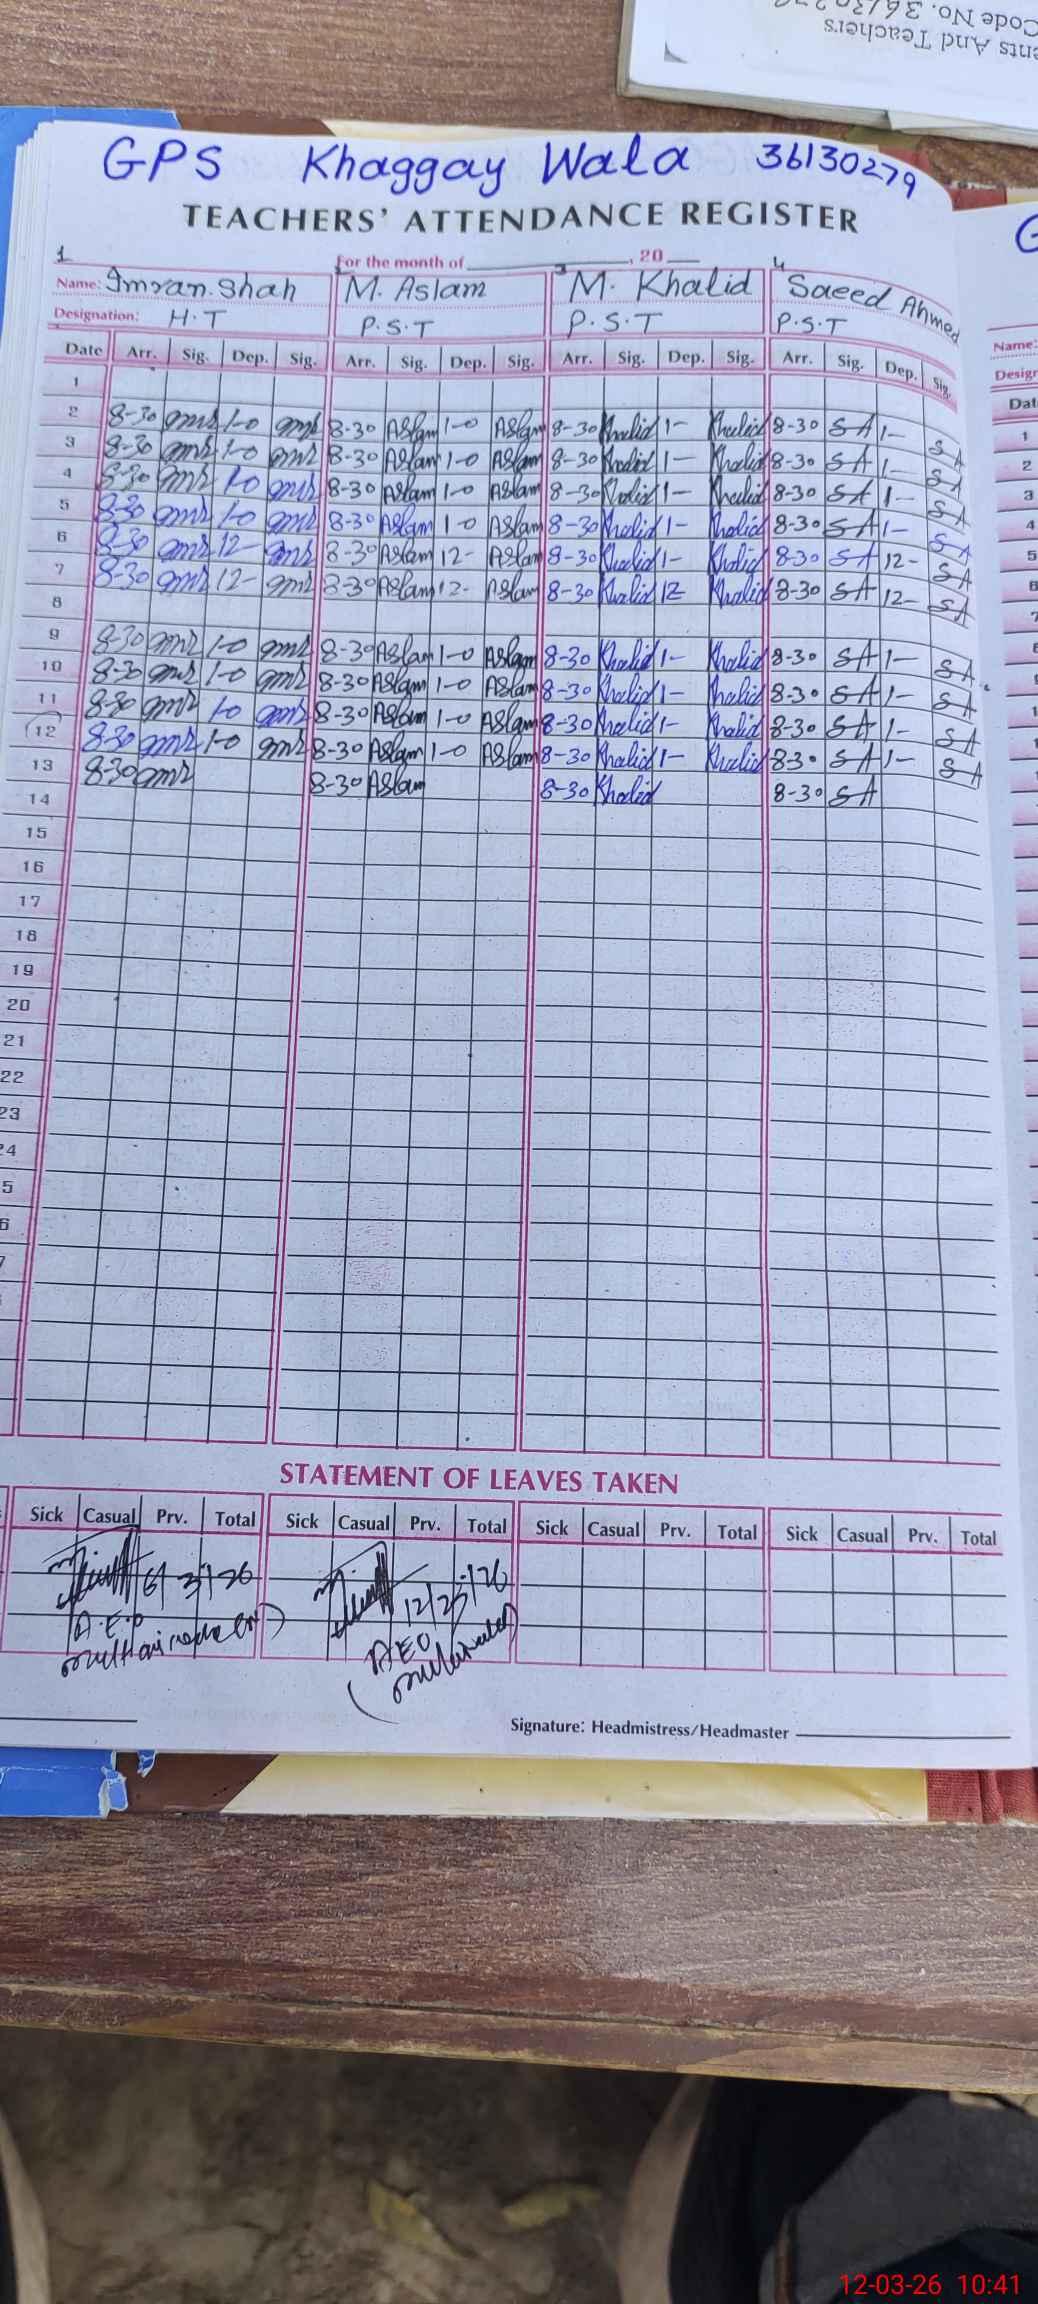 nts And Teachers
Code No. 36130279
GPS Khaggay Wala 36130279
TEACHERS' ATTENDANCE REGISTER
For the month of , 20
1 2 3 4
Name: Imran Shah M. Aslam M. Khalid Saeed Ahmed
Designation: H.T P.S.T P.S.T P.S.T
Date Arr. Sig. Dep. Sig. Arr. Sig. Dep. Sig. Arr. Sig. Dep. Sig. Arr. Sig. Dep. Sig.
1
2 8-30 1-0 8-30 Aslam 1-0 Aslam 8-30 Khalid 1- Khalid 8-30 SA 1- SA
3 8-30 1-0 8-30 Aslam 1-0 Aslam 8-30 Khalid 1- Khalid 8-30 SA 1- SA
4 8-30 1-0 8-30 Aslam 1-0 Aslam 8-30 Khalid 1- Khalid 8-30 SA 1- SA
5 8-30 1-0 8-30 Aslam 1-0 Aslam 8-30 Khalid 1- Khalid 8-30 SA 1- SA
6 8-30 12- 8-30 Aslam 12- Aslam 8-30 Khalid 1- Khalid 8-30 SA 12- SA
7 8-30 12- 8-30 Aslam 12- Aslam 8-30 Khalid 12 Khalid 8-30 SA 12- SA
8
9 8-30 1-0 8-30 Aslam 1-0 Aslam 8-30 Khalid 1- Khalid 8-30 SA 1- SA
10 8-30 1-0 8-30 Aslam 1-0 Aslam 8-30 Khalid 1- Khalid 8-30 SA 1- SA
11 8-30 1-0 8-30 Aslam 1-0 Aslam 8-30 Khalid 1- Khalid 8-30 SA 1- SA
12 8-30 1-0 8-30 Aslam 1-0 Aslam 8-30 Khalid 1- Khalid 8-30 SA 1- SA
13 8-30 8-30 Aslam 8-30 Khalid 8-30 SA
14
15
16
17
18
19
20
21
22
23
24
5
6
7
STATEMENT OF LEAVES TAKEN
Sick Casual Prv. Total Sick Casual Prv. Total Sick Casual Prv. Total Sick Casual Prv. Total
6/3/26
A.E.O AEO
Signature: Headmistress/Headmaster
Name:
Design
Dat
1
2
3
4
5
6
7
12-03-26 10:41